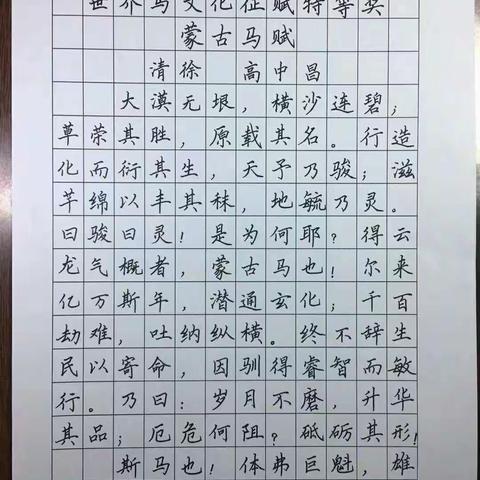 世界马文化征赋特等奖
蒙古马赋
清徐 高中昌
大漠无垠，横沙连碧；
草荣其胜，原载其名。行造
化而衍其生，天予乃骏；滋
芊绵以丰其秣，地毓乃灵。
曰骏曰灵！是为何耶？得云
龙气概者，蒙古马也！尔来
亿万斯年，潜通玄化；千百
劫难，吐纳纵横。终不辞生
民以寄命，因驯得睿智而敏
行。乃曰：岁月不磨，升华
其品；厄危何阻？砥砺其形！
斯马也！体弗巨魁，雄